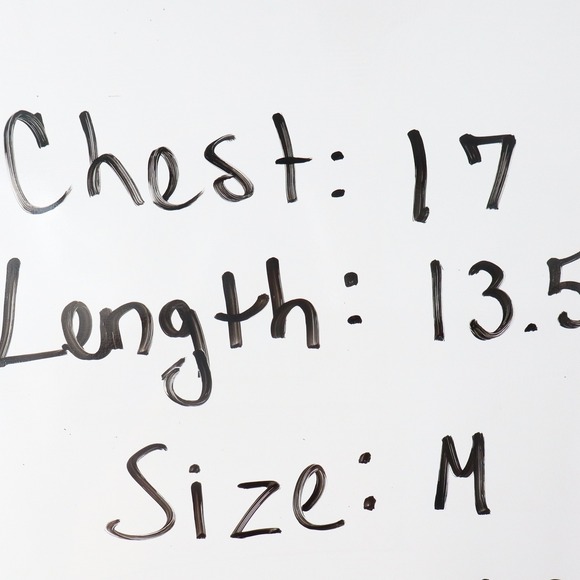 Chest: 17
Length: 13.5
Size: M